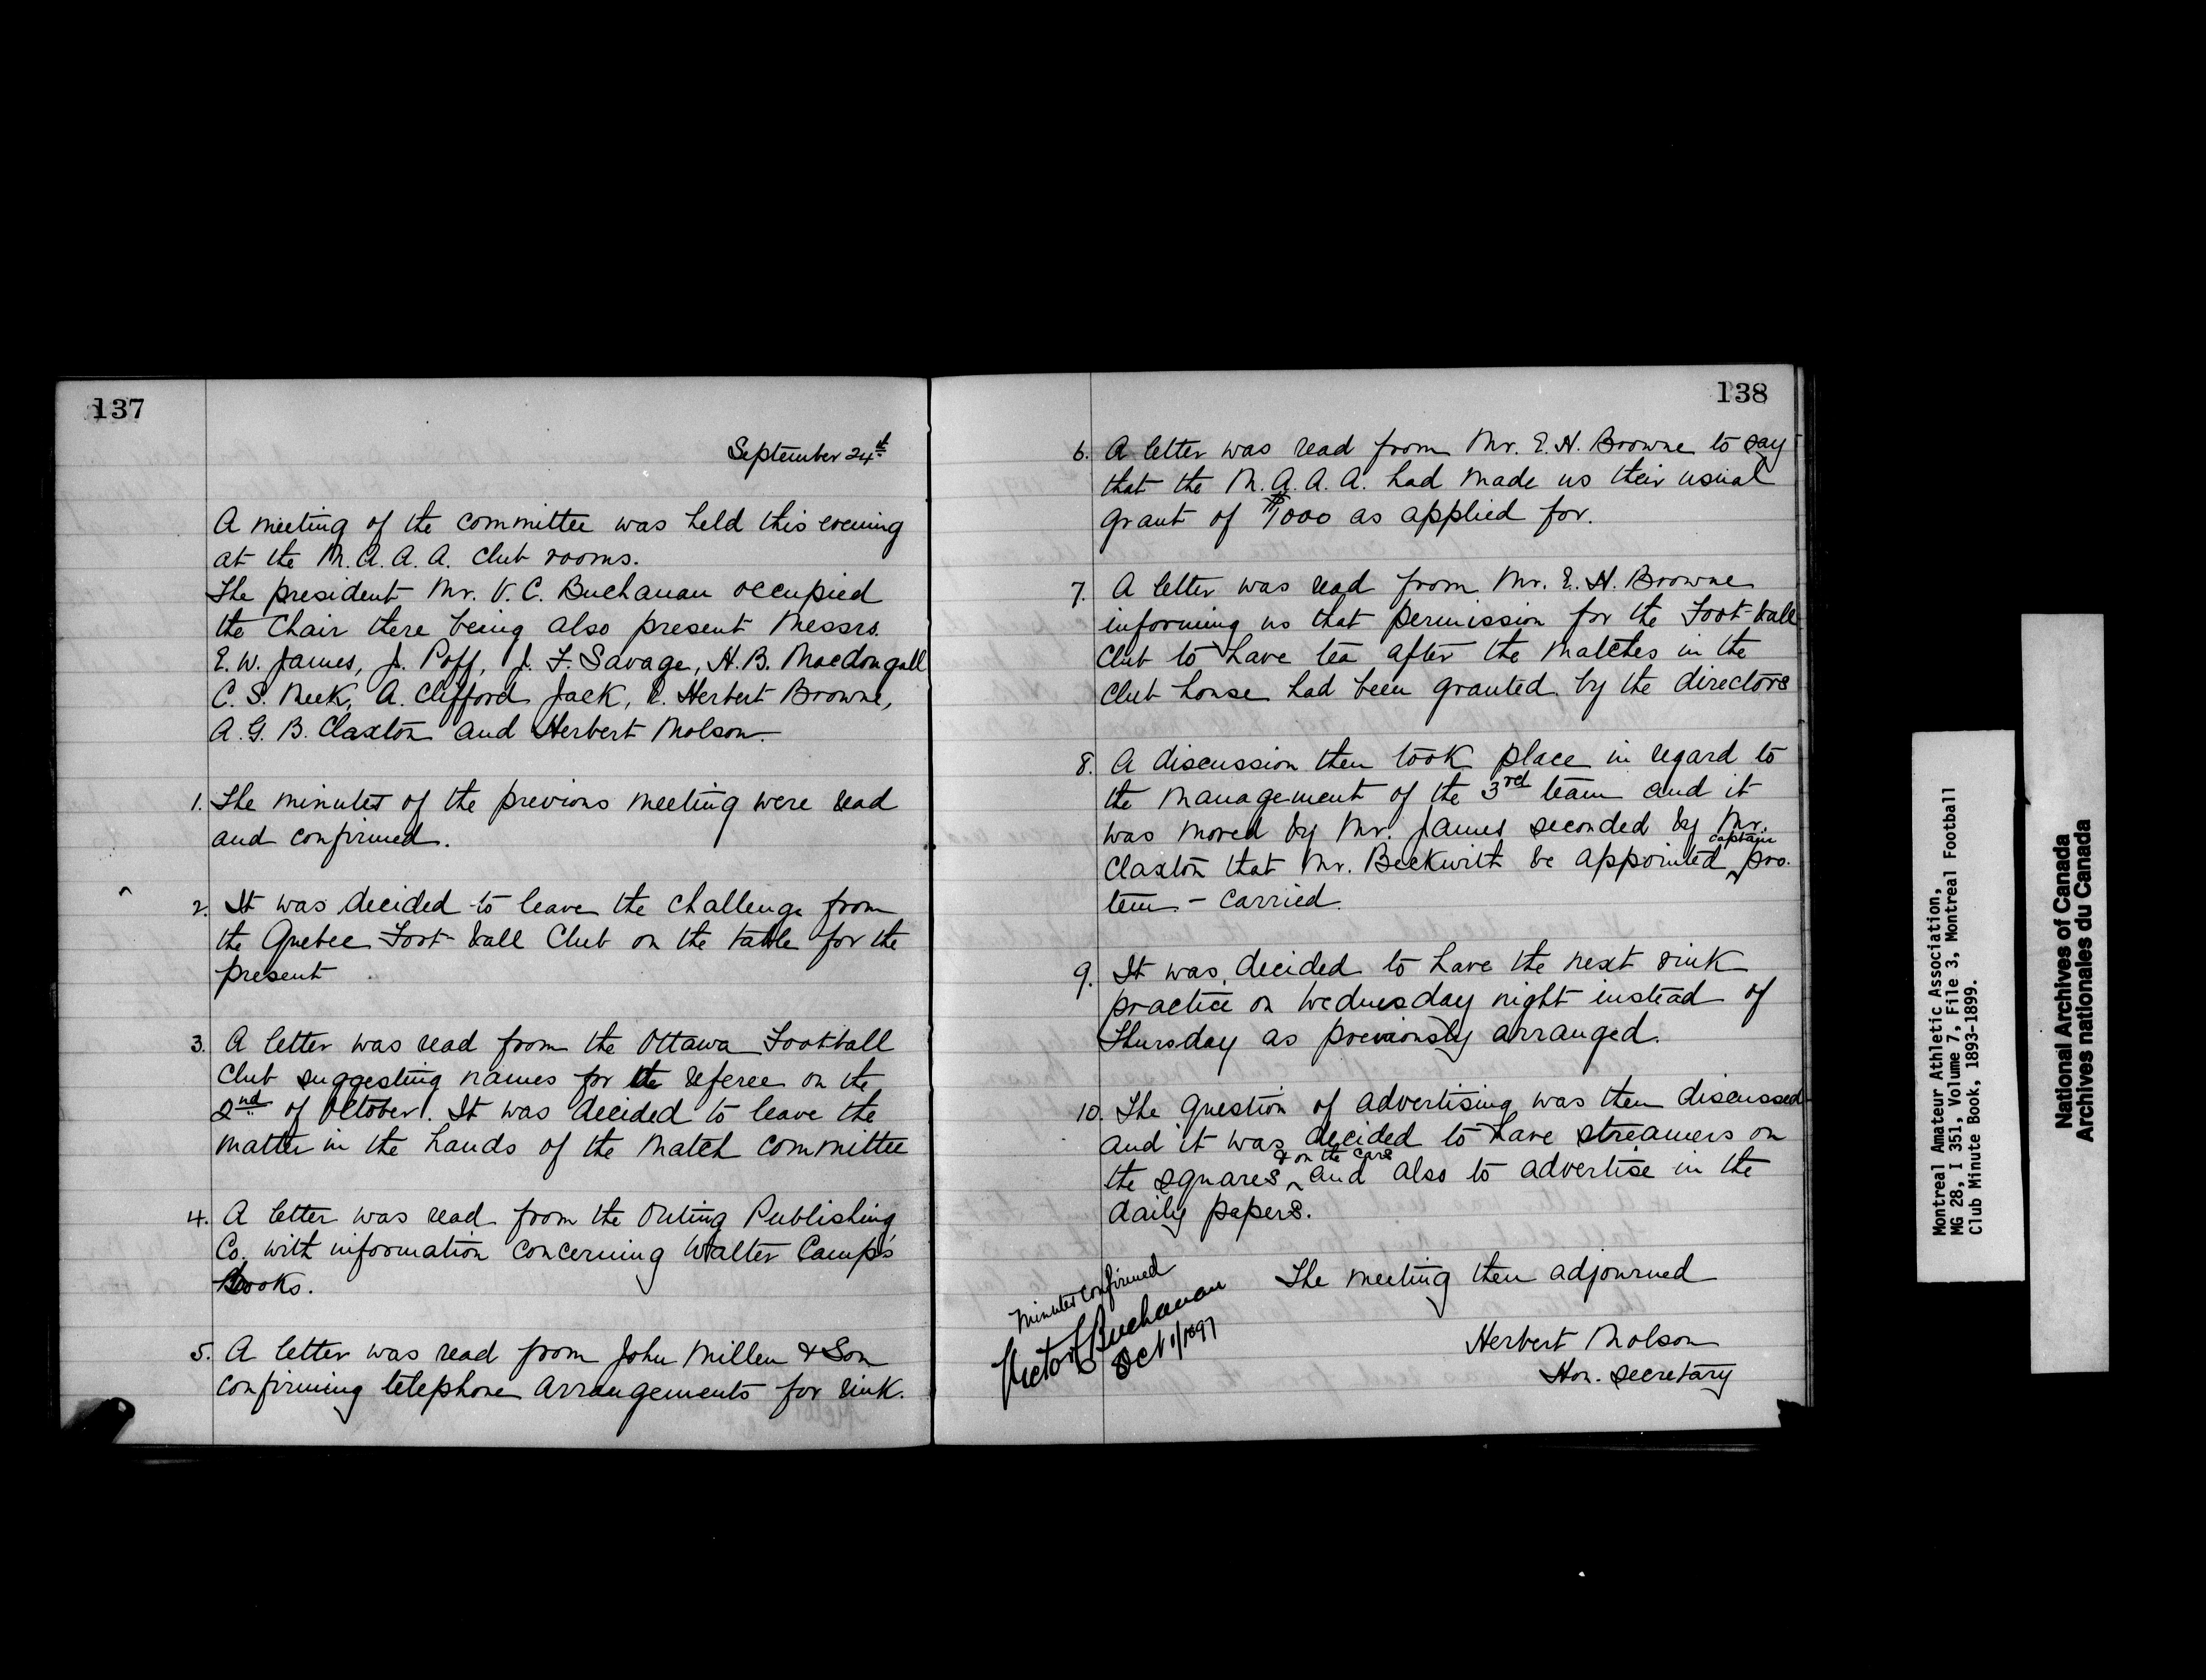 137
September 24th
A meeting of the committee was held this evening
at the M.A.A.A. Club rooms.
The president Mr. V. C. Buchanan occupied
the Chair there being also present Messrs.
E. W. James, J. Poff, J. F. Savage, H. B. Macdougall
C. S. Meek, A. Clifford Jack, E. Herbert Browne,
A. G. B. Claxton and Herbert Molson.
1. The minutes of the previous meeting were read
and confirmed.
2. It was decided to leave the challenge from
the Quebec Foot-ball Club on the table for the
present
3. A letter was read from the Ottawa Football
Club suggesting names for the referee on the
2nd of October. It was decided to leave the
matter in the hands of the match committee
4. A letter was read from the Outing Publishing
Co. with information concerning Walter Camp's
Books.
5. A letter was read from John Millen & Son
confirming telephone arrangements for rink.
138
6. A letter was read from Mr. E. H. Browne to say
that the M.A.A.A. had made us their usual
grant of $1000 as applied for.
7. A letter was read from Mr. E. H. Browne
informing us that permission for the Foot-ball
Club to have tea after the matches in the
Club house had been granted by the directors
8. A discussion then took place in regard to
the management of the 3rd team and it
was moved by Mr. James seconded by Mr.
Claxton that Mr. Beckwith be appointed captain pro.
tem. - Carried.
9. It was decided to have the next rink
practice on Wednesday night instead of
Thursday as previously arranged.
10. The question of advertising was then discussed
and it was decided to have streamers on
the squares & on the cars and also to advertise in the
daily papers.
The meeting then adjourned
Herbert Molson
Hon. Secretary
Minutes Confirmed
Victor C Buchanan
Oct 1/1897
Montreal Amateur Athletic Association,
MG 28, I 351, Volume 7, File 3, Montreal Football
Club Minute Book, 1893-1899.
National Archives of Canada
Archives nationales du Canada